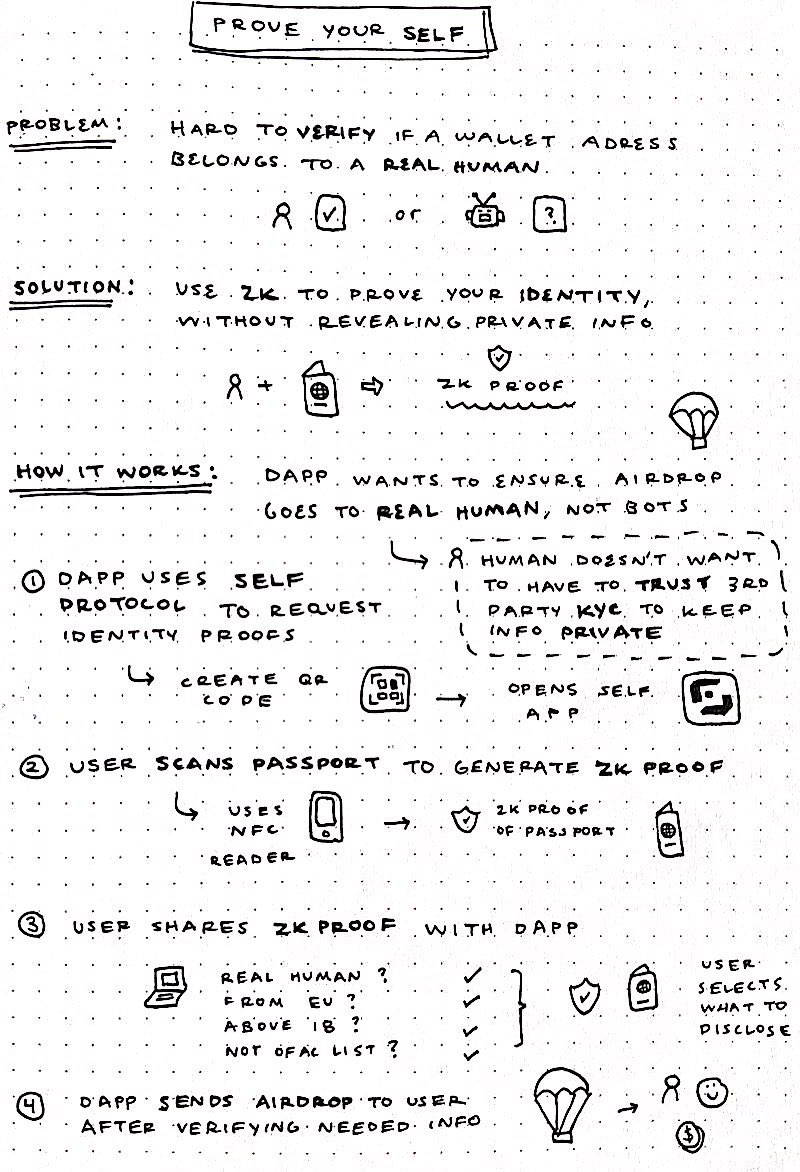 PROVE YOUR SELF
PROBLEM:
HARD TO VERIFY IF A WALLET ADRESS
BELONGS TO A REAL HUMAN
or
?
SOLUTION:
USE ZK TO PROVE YOUR IDENTITY,
WITHOUT REVEALING PRIVATE INFO
+
ZK PROOF
HOW IT WORKS:
DAPP WANTS TO ENSURE AIRDROP
GOES TO REAL HUMAN, NOT BOTS
HUMAN DOESN'T WANT
TO HAVE TO TRUST 3RD
PARTY KYC TO KEEP
INFO PRIVATE
1 DAPP USES SELF
PROTOCOL TO REQUEST
IDENTITY PROOFS
CREATE QR
CODE
OPENS SELF
APP
2 USER SCANS PASSPORT TO GENERATE ZK PROOF
USES
NFC
READER
ZK PROOF
OF PASSPORT
3 USER SHARES ZK PROOF WITH DAPP
REAL HUMAN ?
FROM EU ?
ABOVE 18 ?
NOT OFAC LIST ?
USER
SELECTS
WHAT TO
DISCLOSE
4 DAPP SENDS AIRDROP TO USER
AFTER VERIFYING NEEDED INFO
$